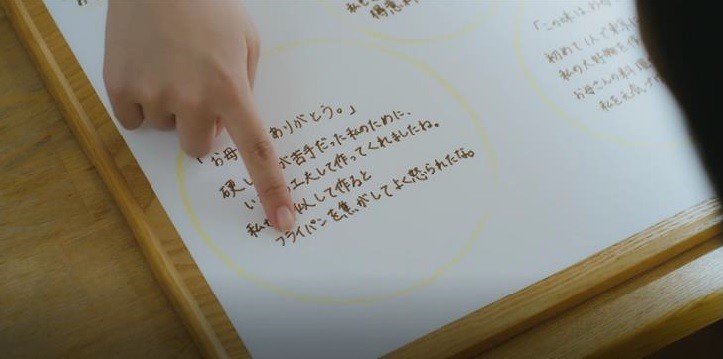 得意
「お母 ありがとう。」
硬 が苦手だった私のために、
い 工夫して作ってくれましたね。
私 似して作ると
フライパンを焦がしてよく怒られたな。
「この味はお母
初めて1人で
私の大好物を作
お母さんの
私を元気